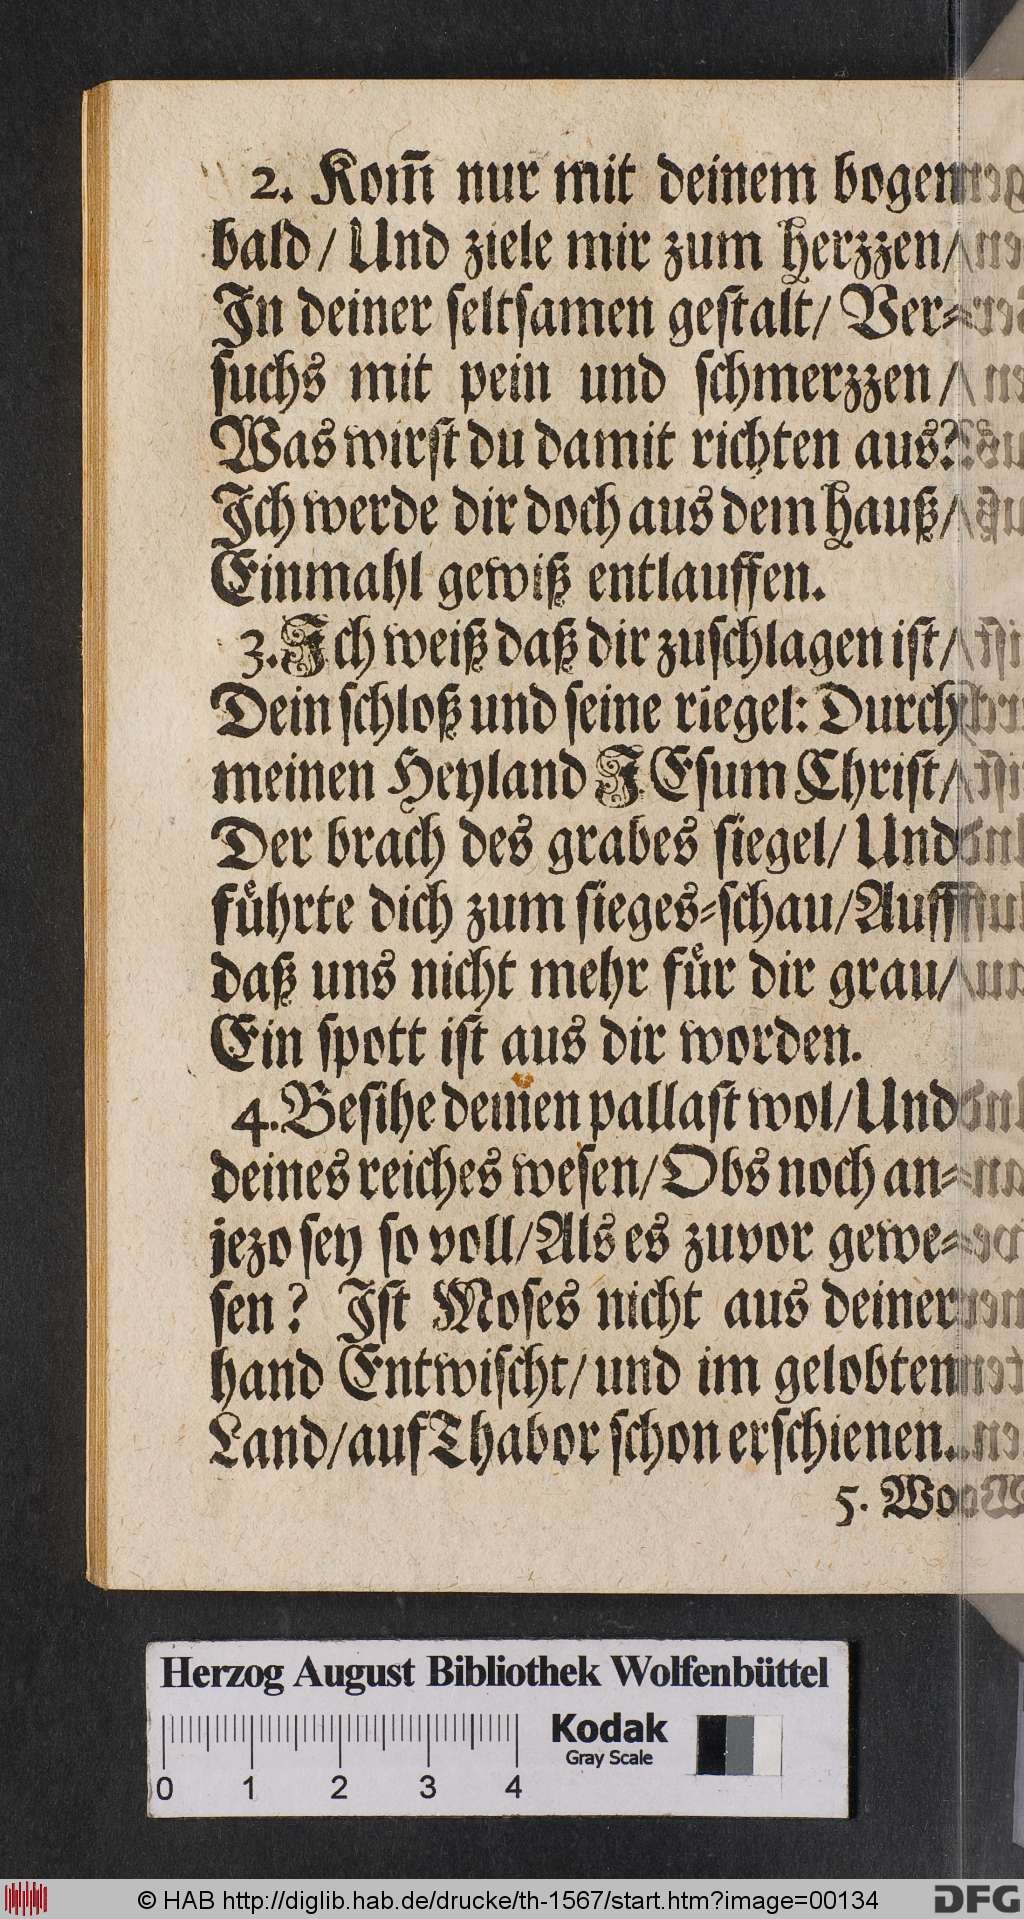 2. Kom̃ nur mit deinem bogen
bald / Und ziele mir zum herzzen /
In deiner seltsamen gestalt / Ver-
suchs mit pein und schmerzzen /
Was wirst du damit richten aus?
Ich werde dir doch aus dem hauß /
Einmahl gewiß entlauffen.
3. Ich weiß daß dir zuschlagen ist /
Dein schloß und seine riegel: Durch
meinen Heyland JEsum Christ /
Der brach des grabes siegel / Und
fuͤhrte dich zum sieges-schau / Auff
daß uns nicht mehr fuͤr dir grau /
Ein spott ist aus dir worden.
4. Besihe deinen pallast wol / Und
deines reiches wesen / Obs noch an-
jezo sey so voll / Als es zuvor gewe-
sen? Ist Moses nicht aus deiner
hand Entwischt / und im gelobten
Land / auf Thabor schon erschienen.
5. Wo
Herzog August Bibliothek Wolfenbüttel
Kodak
Gray Scale
0 1 2 3 4
© HAB http://diglib.hab.de/drucke/th-1567/start.htm?image=00134
DFG